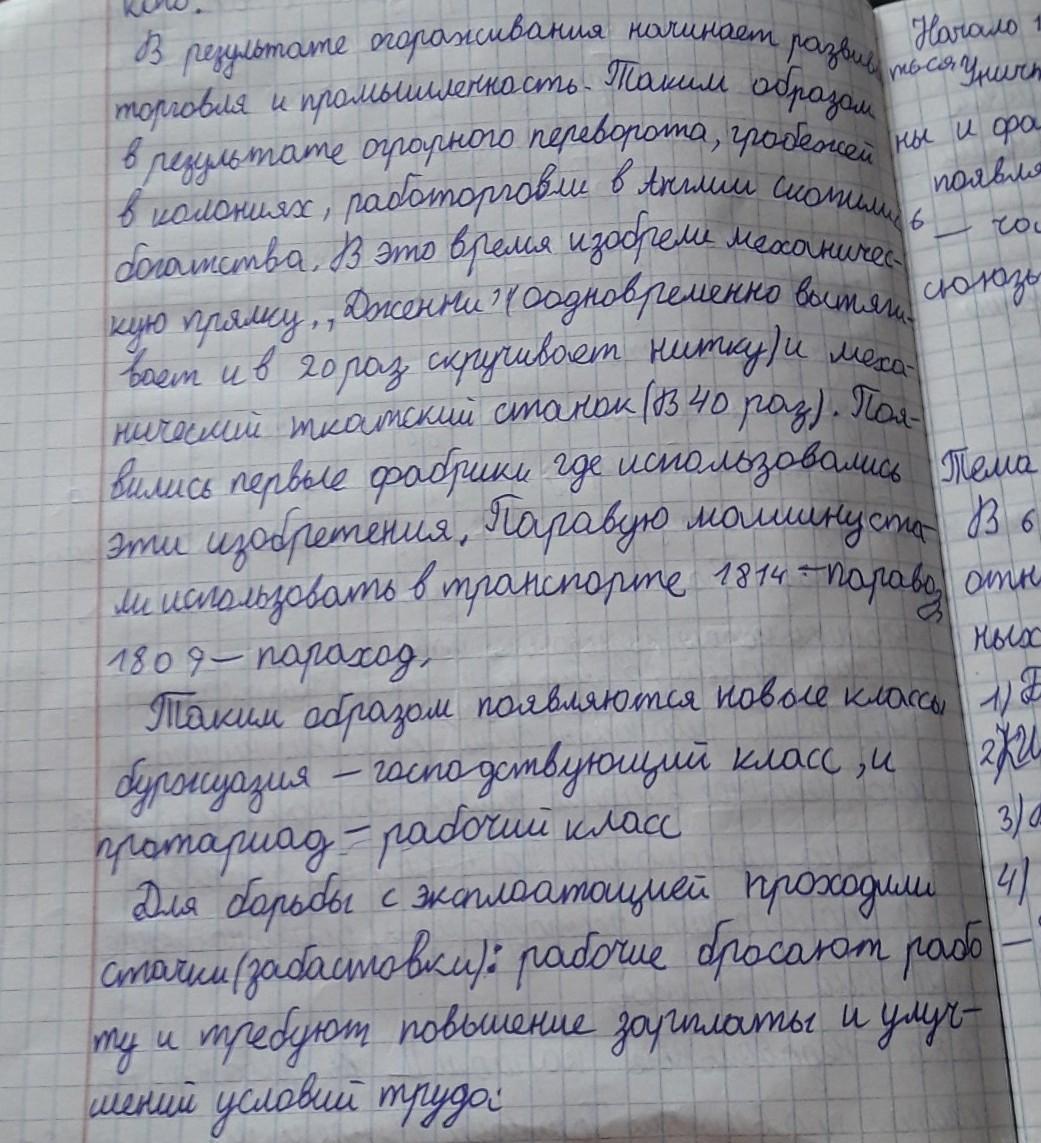 В результате огораживания начинает развив
торговля и промышленность. Таким образом
в результате аграрного переворота, грабежей
в колониях, работорговли в Англии скопились
богатства. В это время изобрели механичес-
кую прялку „Дженни" (Оодновременно вытяги-
вает и в 20 раз скручивает нитку) и меха-
нический ткатский станок (В 40 раз). Поя-
вились первые фабрики где использовались
эти изобретения. Паравую машину ста-
ли использовать в транспорте 1814 – паравоз
1809 – параход.
Таким образом появляются новые классы
буржуазия – господствующий класс, и
протариад – рабочий класс
Для борьбы с эксплоатацией проходили
стачки (забастовки): рабочие бросают рабо
ту и требуют повышение зарплаты и улуч-
шений условий труда.
Начало
ться
ны и фа
появля
союзы
Тема
В
отн
ных
1)
2)
3)
4)
—